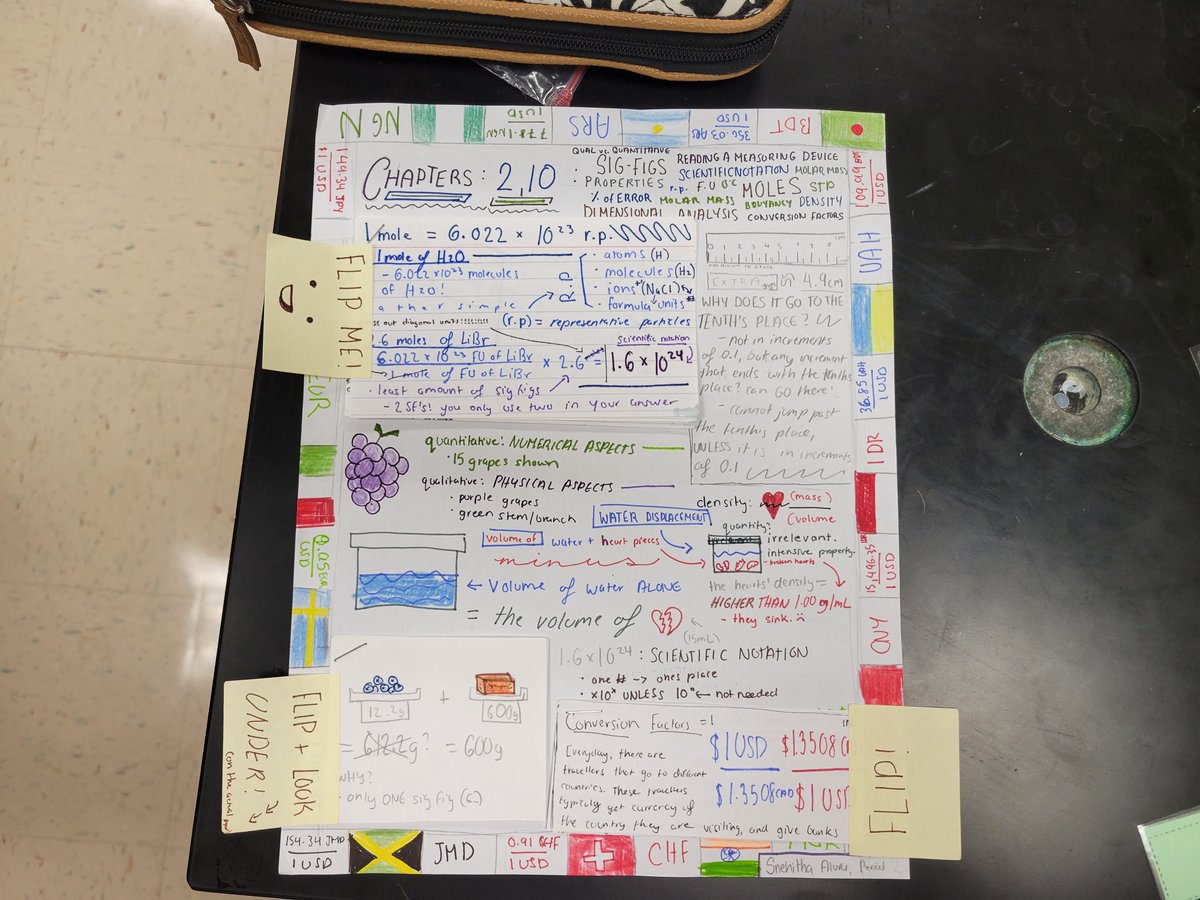 NGN
778.1 NGN
1 USD
ARS
356.03 ARS
1 USD
BDT
109.019 BDT
1 USD
149.34 JPY
$1 USD
CHAPTERS: 2,10
QUAL vs. QUANTITATIVE
SIG-FIGS
PROPERTIES
r.p. F.U
% of ERROR
DIMENSIONAL ANALYSIS
READING A MEASURING DEVICE
SCIENTIFIC NOTATION MOLAR MASS
MOLES STP
MOLAR MASS BOUYANCY DENSITY
CONVERSION FACTORS
FLIP ME!
1 mole = 6.022 × 10²³ r.p.
1 mole of H2O
- 6.022 ×10²³ molecules
of H2O!
r.p.
· atoms (H)
· molecules (H2)
· ions (NaCl)
· formula units
a ther simple
ss out diagonal units!!!!!!!!!!
(r.p) = representative particles
.6 moles of LiBr
6.022 × 10²³ FU of LiBr × 2.6
1 mole of FU of LiBr
scientific notation
1.6 × 10²⁴
· least amount of sig figs
- 2 SF's! you only use two in your answer
0 1 2 3 4 5 6 7 8
cm
EXTRA
4.9cm
WHY DOES IT GO TO THE
TENTH'S PLACE?
- not in increments
of 0.1, but any increment
that ends with the tenths
place? can GO there!
- cannot jump past
the tenths place,
UNLESS it is in increments
of 0.1
UAH
36.85 UAH
1 USD
IDR
15,496.35 IDR
1 USD
CNY
EUR
0.95 EUR
USD
quantitative: NUMERICAL ASPECTS
· 15 grapes shown
qualitative: PHYSICAL ASPECTS
· purple grapes
· green stem/branch
density:
(mass)
(volume
WATER DISPLACEMENT
quantity?
irrelevant.
intensive property.
- broken hearts
volume of water + heart pieces
minus
← Volume of water ALONE
= the volume of
(15mL)
the hearts' density =
HIGHER THAN 1.00 g/mL
- they sink.
1.6×10²⁴ : SCIENTIFIC NOTATION
· one # -> ones place
· ×10ˣ UNLESS 10⁰ ← not needed
12.2g
+
600g
= 612.2g? = 600g
WHY?
- only ONE sig fig (6-)
FLIP + LOOK
UNDER!
(on the actual
Conversion Factors = 1
Everyday, there are
travellers that go to different
countries. These travellers
typically get currency of
the country they are visiting, and give banks
$1 USD
$1.3508 CAD
$1.3508 C
$1 USD
FLIP!
154.34 JMD
1 USD
JMD
0.91 CHF
1 USD
CHF
Snehitha Alluru, Period